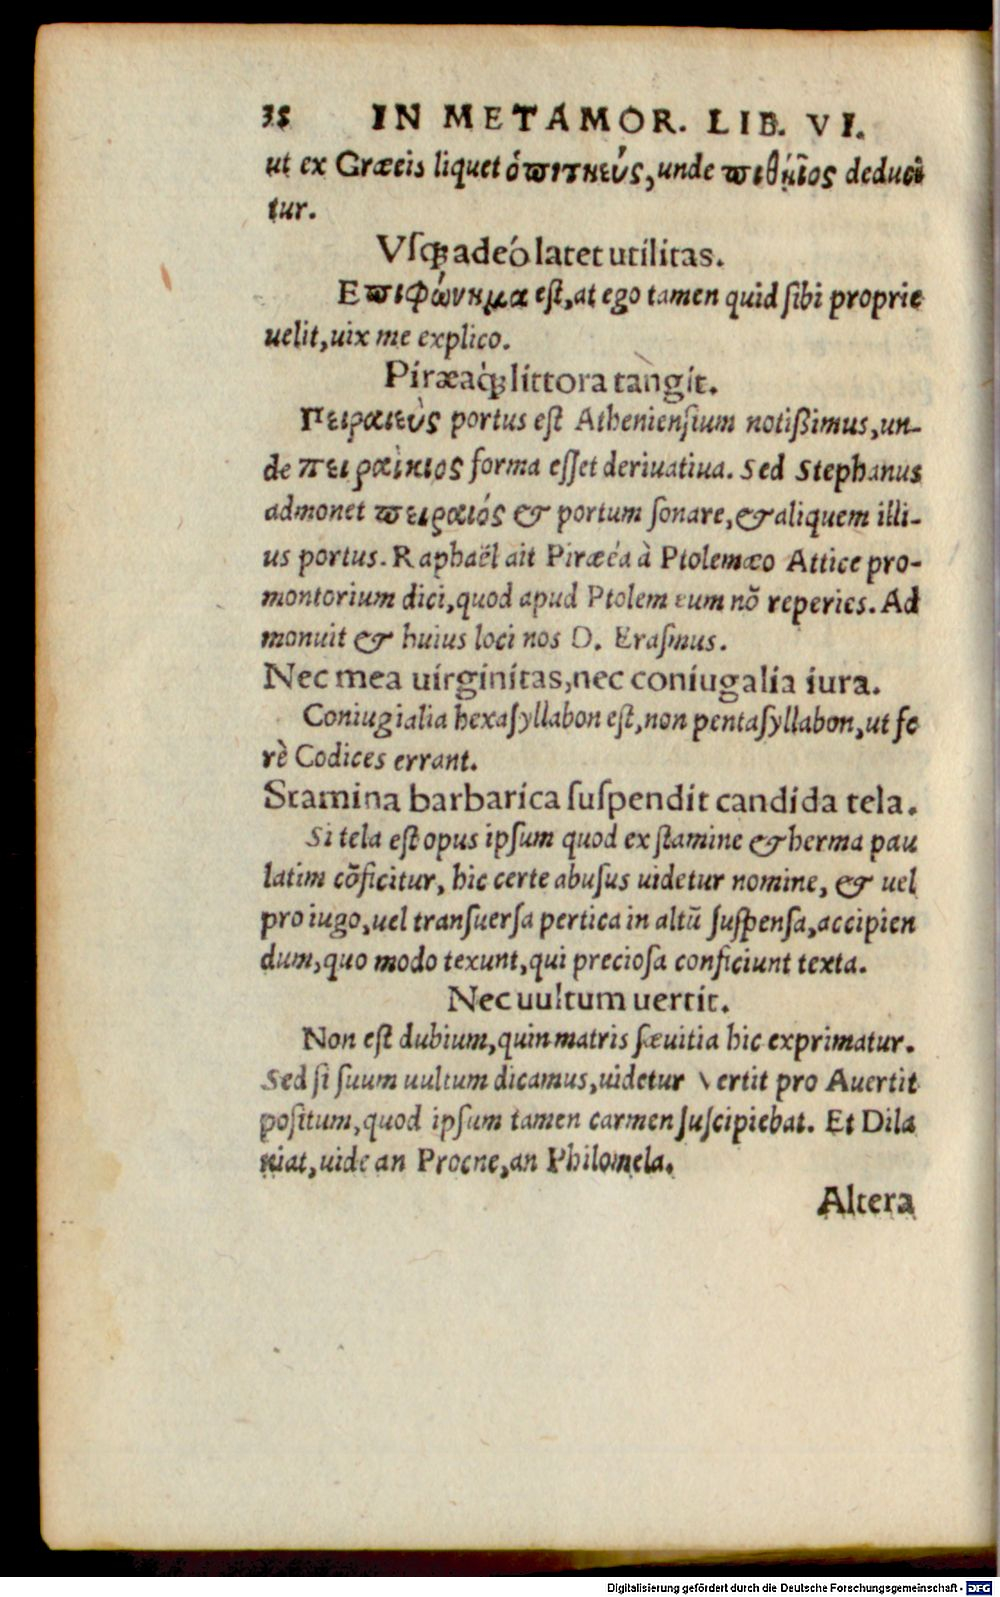 35 IN METAMOR. LIB. VI.
ut ex Græcis liquet ὁπιτκεύς, unde πιθήϊος deducĩ
tur.
Vſq; adeó latet utilitas.
Επιφώνημα eſt, at ego tamen quid ſibi proprie
uelit, uix me explico.
Piræaq́; littora tangit.
Πειραιεὺς portus eſt Athenienſium notißimus, un-
de πειραίκιος forma eſſet deriuatiua. Sed Stephanus
admonet πειραιός & portum ſonare, & aliquem illi-
us portus. Raphaël ait Piræéa à Ptolemæo Attice pro-
montorium dici, quod apud Ptolemeum nõ reperies. Ad
monuit & huius loci nos D. Eraſmus.
Nec mea uirginitas, nec coniugalia iura.
Coniugialia hexaſyllabon eſt, non pentaſyllabon, ut fe
rè Codices errant.
Stamina barbarica ſuſpendit candida tela.
Si tela eſt opus ipſum quod ex ſtamine & herma pau
latim cõficitur, hic certe abuſus uidetur nomine, & uel
pro iugo, uel tranſuerſa pertica in altũ ſuſpenſa, accipien
dum, quo modo texunt, qui precioſa conficiunt texta.
Nec uultum uertit.
Non eſt dubium, quin matris ſæuitia hic exprimatur.
Sed ſi ſuum uultum dicamus, uidetur Vertit pro Auertit
poſitum, quod ipſum tamen carmen ſuſcipiebat. Et Dila
niat, uide an Procne, an Philomela.
Altera
Digitalisierung gefördert durch die Deutsche Forschungsgemeinschaft - DFG